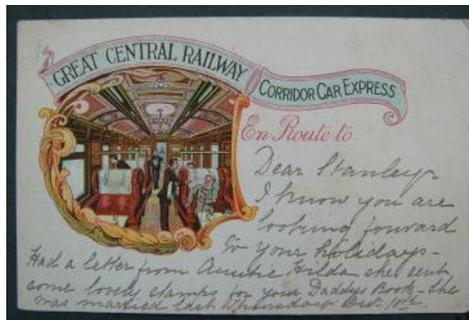 GREAT CENTRAL RAILWAY
CORRIDOR CAR EXPRESS
En Route to
Dear Stanley
I know you are
looking forward
to your holidays -
Had a letter from Auntie Hilda she sent
some lovely stamps for your Daddys Book - She
was married last Oct. 10th.